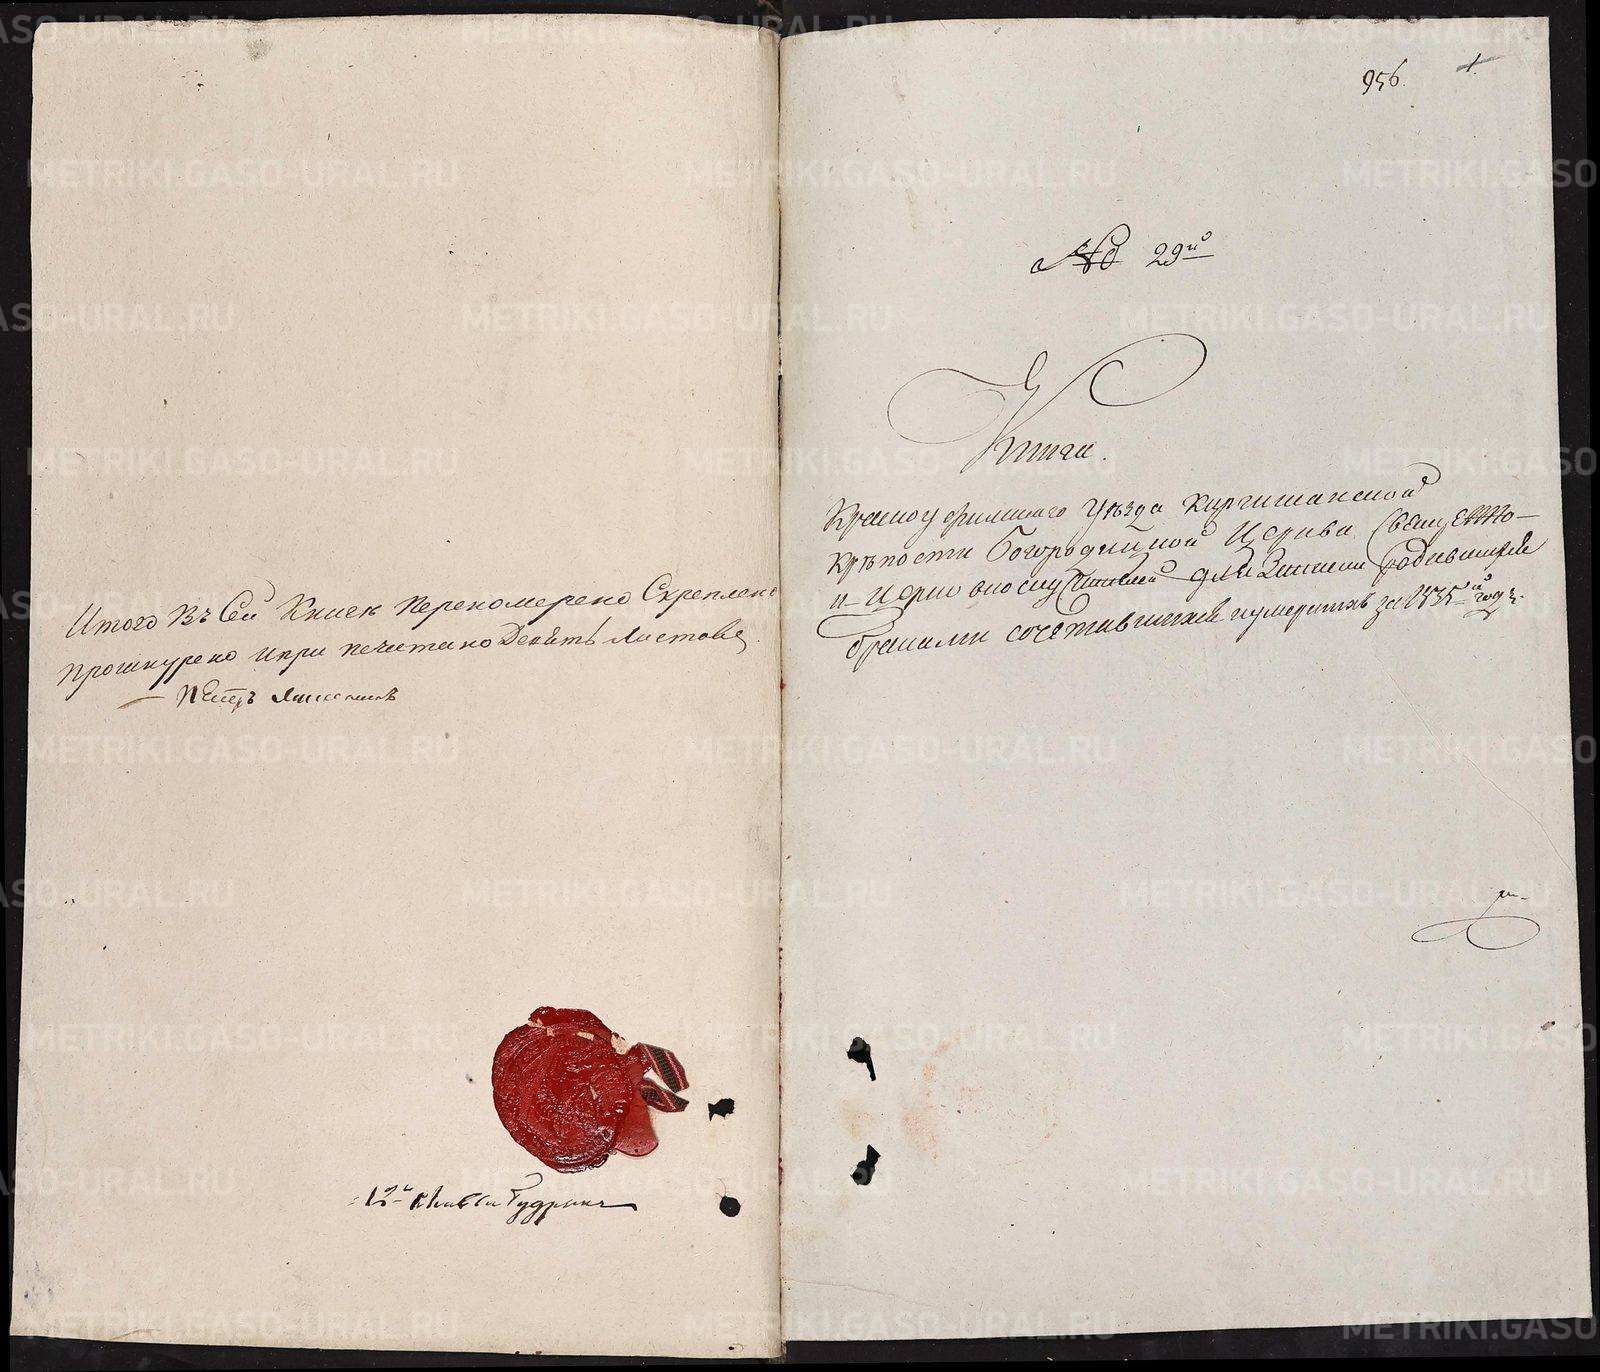 Итого Въ Сей Книгѣ Перекомерено Скреплено
прошнурено и при печатано Девять Листовъ
Петръ
12й класса
956.
1.
№ 29й
Книга
Красноуфимскаго Уѣзда Киргишанской
крѣпости Богородицкой Церкви Священно-
и Церковнослужителей для Записки Родившихся
браками сочетавшихся и умершихъ за 1835й годъ.
METRIKI.GASO-URAL.RU